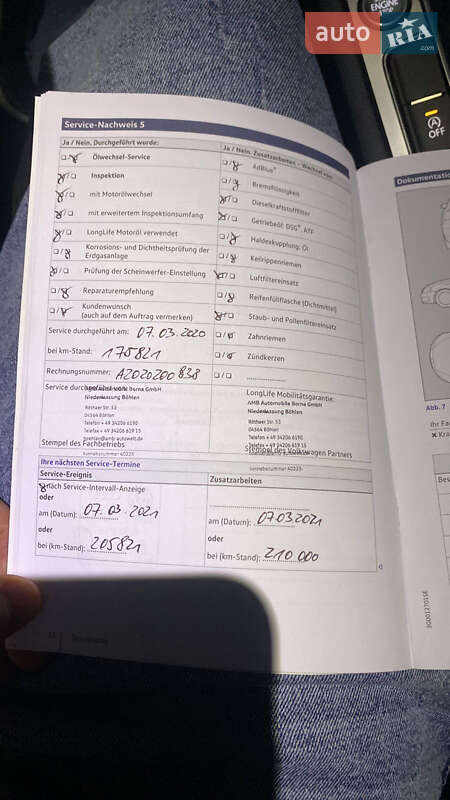 auto RIA .com
ENGINE
OFF
Service-Nachweis 5
Ja / Nein, Durchgeführt wurde:
Ölwechsel-Service
Inspektion
mit Motorölwechsel
mit erweitertem Inspektionsumfang
LongLife Motoröl verwendet
Korrosions- und Dichtheitsprüfung der
Erdgasanlage
Prüfung der Scheinwerfer-Einstellung
Reparaturempfehlung
Kundenwunsch
(auch auf dem Auftrag vermerken)
Service durchgeführt am: 07.03.2020
bei km-Stand: 175821
Rechnungsnummer: A2020200838
Service durchgeführt
AMB Automobile Borna GmbH
Niederlassung Böhlen
Röthaer Str. 53
04564 Böhlen
Telefon + 49 34206 6190
Telefax + 49 34206 619 15
Stempel des Fachbetriebs
Ja / Nein, Zusatzarbeiten – Wechsel von:
AdBlue®
Bremsflüssigkeit
Dieselkraftstofffilter
Getriebeöl: DSG®, ATF
Haldexkupplung: Öl
Keilrippenriemen
Luftfiltereinsatz
Reifenfüllflasche (Dichtmittel)
Staub- und Pollenfiltereinsatz
Zahnriemen
Zündkerzen
LongLife Mobilitätsgarantie:
AMB Automobile Borna GmbH
Niederlassung Böhlen
Röthaer Str. 53
04564 Böhlen
Telefon + 49 34206 6190
Telefax + 49 34206 619 15
Stempel des Volkswagen Partners
Ihre nächsten Service-Termine
Service-Ereignis
nach Service-Intervall-Anzeige
oder
am (Datum): 07.03.2021
oder
bei (km-Stand): 205821
Zusatzarbeiten
am (Datum): 07032021
oder
bei (km-Stand): 210 000
Dokumentatio
Abb. 7
Ihr Fa
3G0012701SE